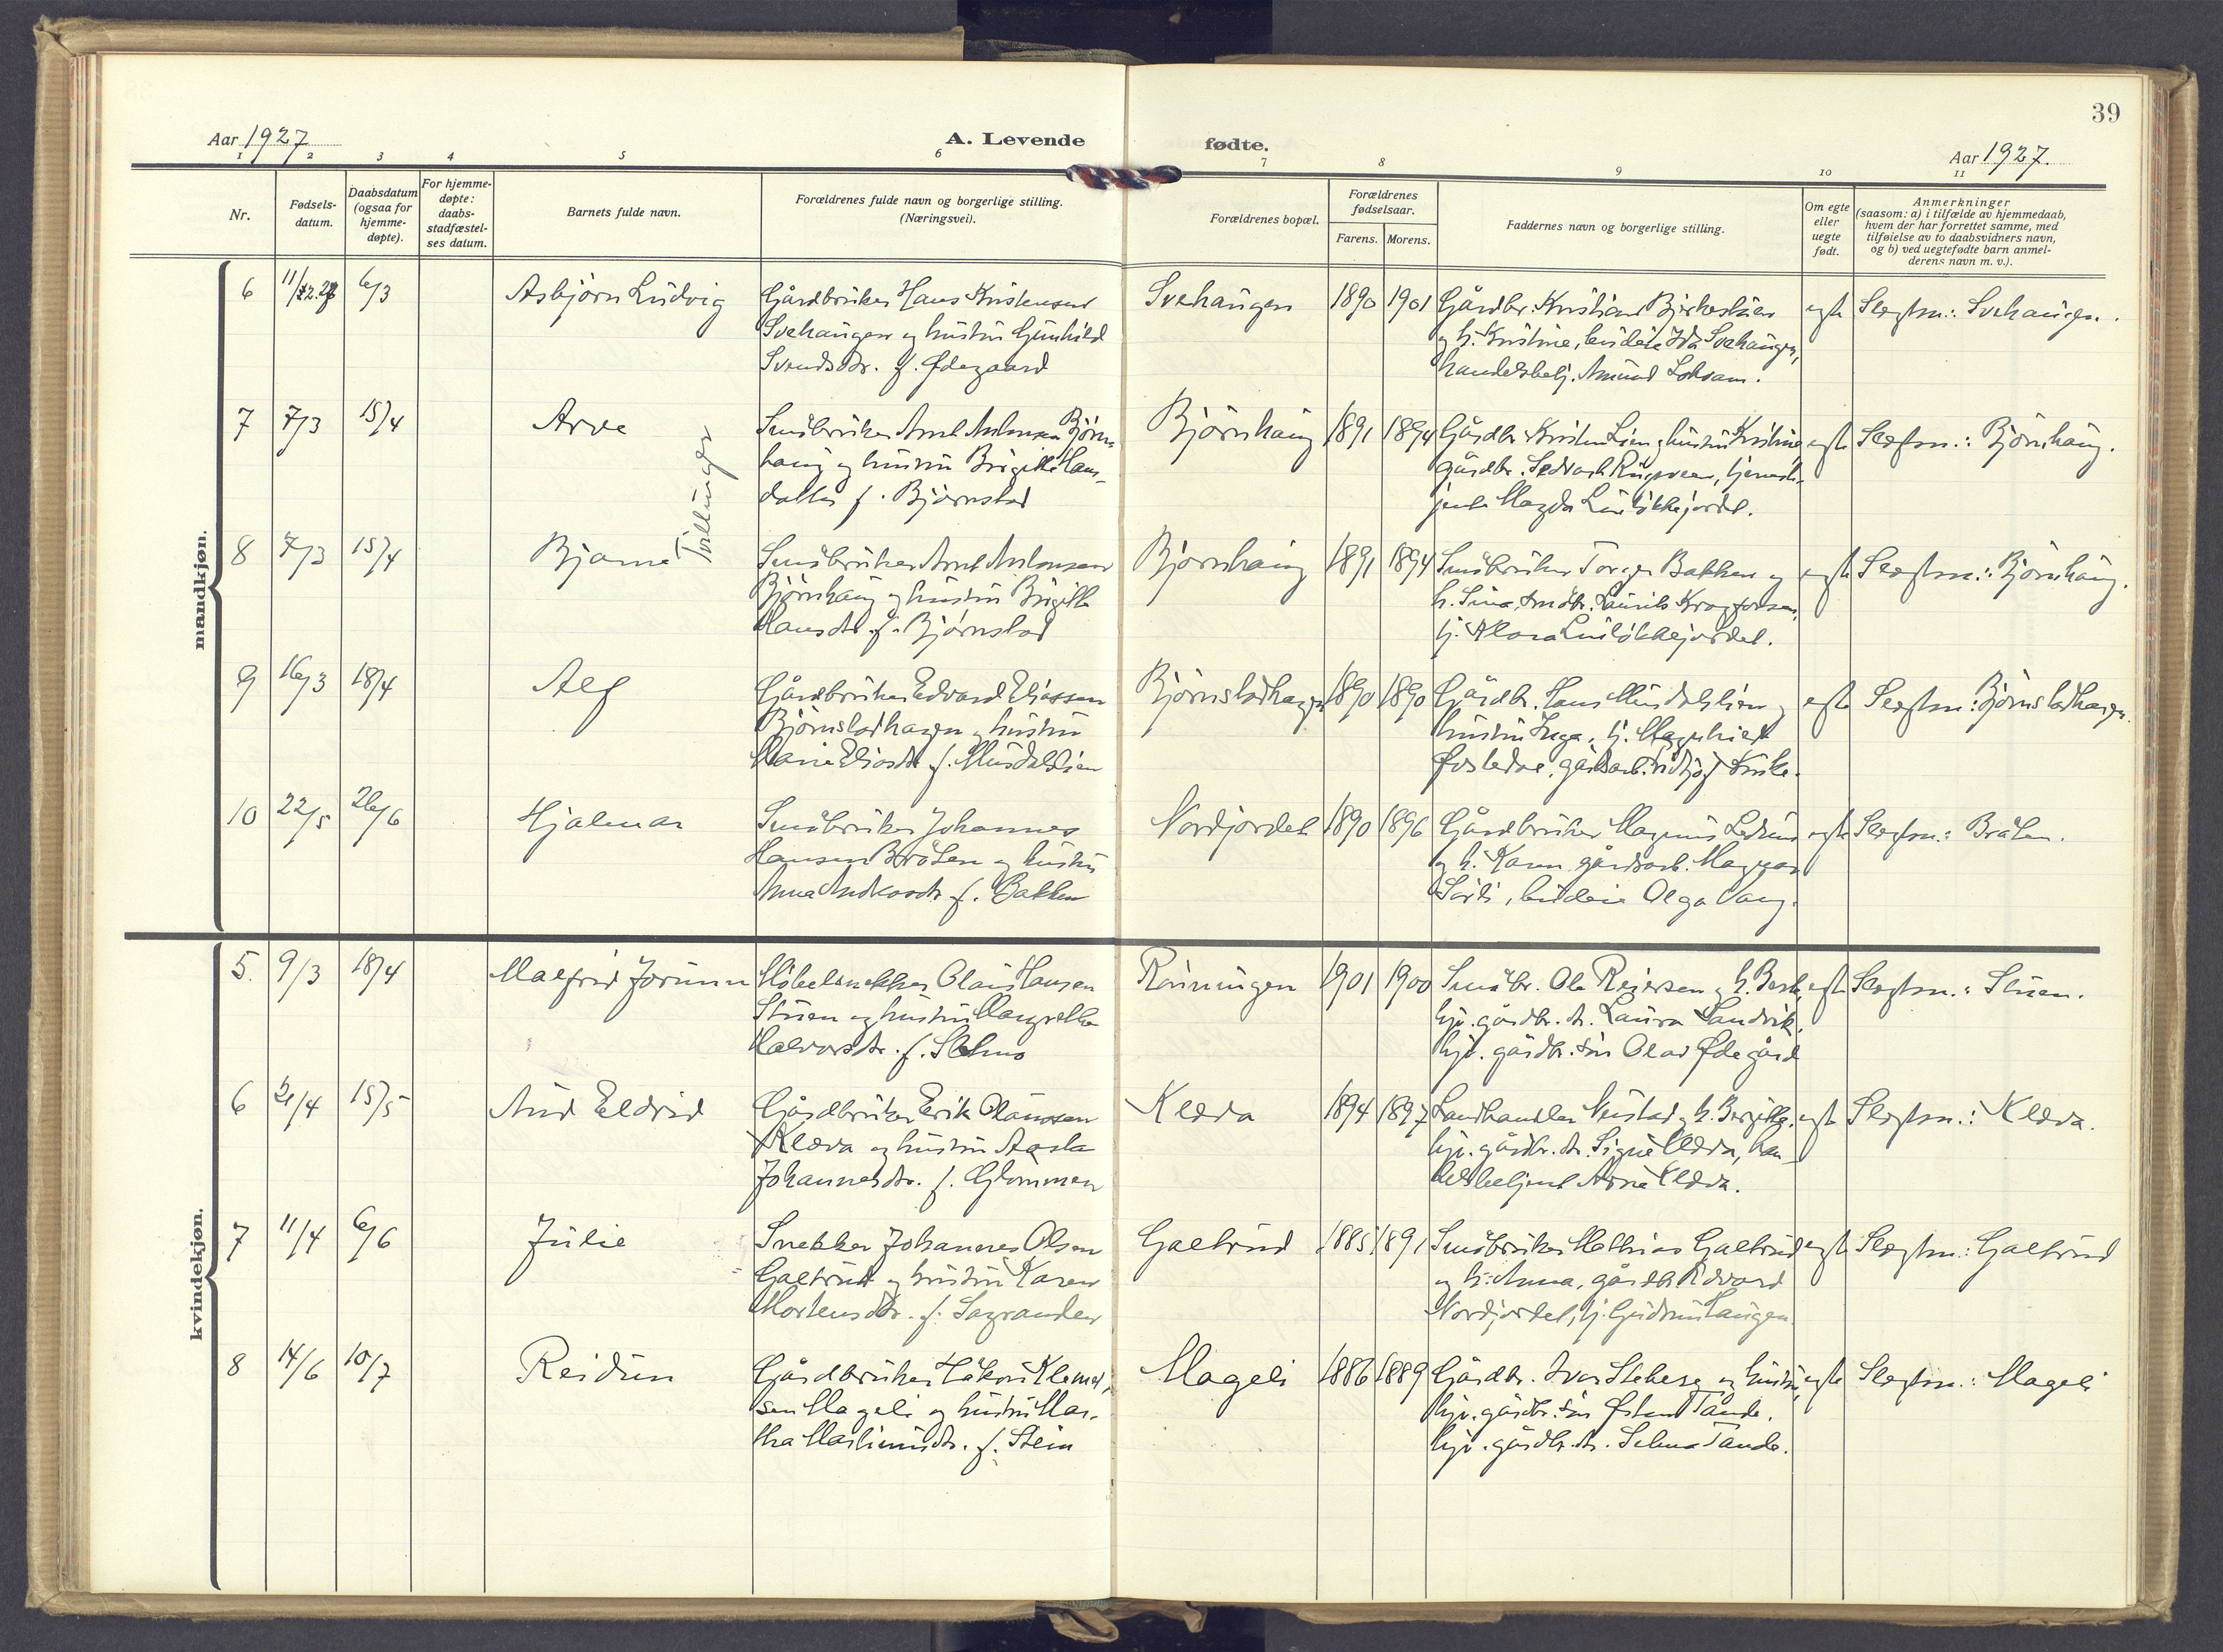 39
Aar 1927
A. Levende
fødte.
Aar 1927.
1 2 3 4 5 6 7 8 9 10 11
Nr.
Fødsels-
datum.
Daabsdatum
(ogsaa for
hjemme-
døpte).
For hjemme-
døpte:
daabs-
stadfæstel-
ses datum.
Barnets fulde navn.
Forældrenes fulde navn og borgerlige stilling.
(Næringsvei).
Forældrenes bopæl.
Forældrenes
fødselsaar.
Farens. Morens.
Faddernes navn og borgerlige stilling.
Om egte
eller
uegte
født.
Anmerkninger
(saasom: a) i tilfælde av hjemmedaab,
hvem der har forrettet samme, med
tilføielse av to daabsvidners navn,
og b) ved uegtefødte barn anmel-
derens navn m. v.).
mandkjøn.
6 6/3 Asbjørn Ludvig
Gårdbruker Hans Kristensen
Svehaugen og hustru Gunhild
Svendsdtr. f. Ødegaard
Svehaugen 1890 1901
Gårdbr. Kristian
og h. Kristine, budeie Ida Svehaugen,
handelsbetj. Amund
egte Slegtsn.: Svehaugen.
7 7/3 15/4 Arve
Tvillinger
Småbruker Arnt Antonsen Bjørn-
haug og hustru Birgitte Hans-
datter f. Bjørnstad
Bjørnhaug 1891 1894
Gårdbr. Kristen Lien og hustru Kristine
gårdbr. Sedvart tjeneste-
jente Magda
egte Slegtsn.: Bjørnhaug.
8 7/3 15/4 Bjarne
Småbruker Arnt Antonsen
Bjørnhaug og hustru Birgitte
Hansdtr. f. Bjørnstad
Bjørnhaug 1891 1894
Småbruker Torger Bakken og
h. Sina, småbr. Laurits
tj. Klara
egte Slegtsn.: Bjørnhaug.
9 16/3 18/4 Alf
Gårdbruker Edvard Eliassen
Bjørnstadhagen og hustru
Marie Eliasdtr. f. Musdalslien
Bjørnstadhagen 1890 1890
Gårdbr. Hans Musdalslien og
hustru Inga, tj. Magnhild
gårdsarb.
egte Slegtsn.: Bjørnstadhagen.
10 22/5 26/6 Hjalmar
Småbruker Johannes
Hansen Bråten og hustru
Anna f. Bakken
Nordjordet 1890 1896
Gårdbruker Magnus
og h. Karen, gårdsarb.
budeie Olga Vang.
egte Slegtsn.: Bråten.
kvindekjøn.
5. 9/3 18/4 Malfrid Jorunn
Møbelsnekker Olaus Hansen
Stuen og hustru Margrethe
Halvorsdtr. f.
Rønningen 1901 1900
Småbr. Ole Reiersen og h. Berte,
hjv. gårdbr. dt. Laura Sandvik,
hjv. gårdbr. søn Olav Ødegård
egte Slegtsn.: Stuen.
6 15/5 Aud Eldrid
Gårdbruker Erik Olaussen
Kleva og hustru Aasta
Johannesdtr. f. Glømmen
Kleva 1894 1897
Landhandler Nustad og h. Bergitte,
hjv. gårdbr. dt. Signe Kleva, han-
delsbetjent Arne Kleva.
egte Slegtsn.: Kleva.
7 11/4 6/6 Julie
Snekker Johannes Olsen
Galtrud og hustru Karen
Mortensdtr. f.
Galtrud 1885 1891
Småbruker Mathias Galtrud
og h. Anna, gårdbr. Edvard
Nordjordet, tj. Gudrun Haugen
egte Slegtsn.: Galtrud
8 14/6 10/7 Reidun
Gårdbruker Håkon Klemet-
sen Mageli og hustru Mar-
tha Martinusdtr. f. Stein
Mageli 1886 1889
Gårdbr. Ivar og hustru,
hjv. gårdbr. søn Østen Tande,
hjv. gårdbr. dt. Selma Tande.
egte Slegtsn.: Mageli